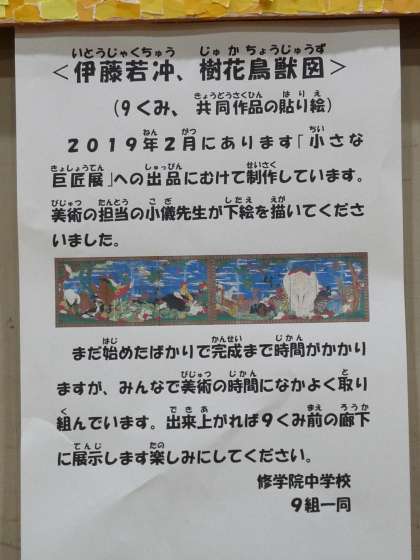 いとうじゃくちゅう じゅかちょうじゅうず
＜伊藤若冲、樹花鳥獣図＞
きょうどうさくひん はりえ
（９くみ、共同作品の貼り絵）
ねん がつ ちい
２０１９年２月にあります「小さな
きょしょうてん しゅっぴん せいさく
巨匠展」への出品にむけて制作しています。
びじゅつ たんとう こぎ したえ えが
美術の担当の小儀先生が下絵を描いてくださ
いました。
はじ かんせい じかん
まだ始めたばかりで完成まで時間がかかり
びじゅつ じかん と
ますが、みんなで美術の時間になかよく取り
く できあ まえ ろうか
組んでいます。出来上がれば９くみ前の廊下
てんじ たの
に展示します楽しみにしてください。
修学院中学校
９組一同